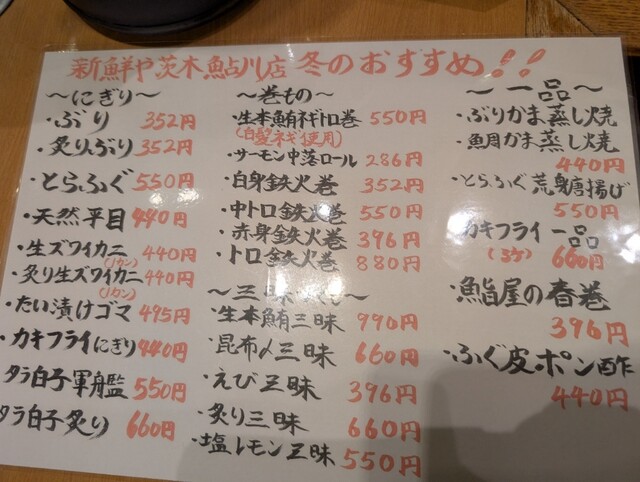 新鮮や茨木鮎川店 冬のおすすめ!!
～にぎり～
・ぶり 352円
・炙りぶり 352円
・とらふぐ 550円
・天然平目 440円
・生ズワイカニ 440円
(1カン)
・炙り生ズワイカニ 440円
(1カン)
・たい漬けゴマ 495円
・カキフライにぎり 440円
タラ白子軍艦 550円
タラ白子炙り 660円
～巻もの～
・生本鮪ネギトロ巻 550円
(白髪ネギ使用)
・サーモン中落ロール 286円
・白身鉄火巻 352円
・中トロ鉄火巻 550円
・赤身鉄火巻 396円
・トロ鉄火巻 880円
～三昧
・生本鮪三昧 990円
・昆布〆三昧 660円
・えび三昧 396円
・炙り三昧 660円
・塩レモン三昧 550円
～一品～
・ぶりかま蒸し焼
・鯛かま蒸し焼
440円
・とらふぐ荒身唐揚げ
550円
カキフライ一品
(3ケ) 660円
・鮨屋の春巻
396円
・ふぐ皮ポン酢
440円